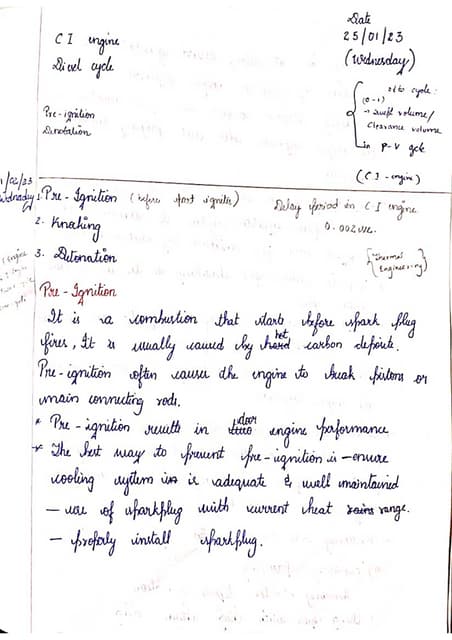 Date
25/01/23
(Wednesday)
C I engine
Diesel cycle
Pre-ignition
Detotation
otto cycle:
(0-1)
→ swept volume/
Clearance volume
in P-V
(CI-engine)
/02/23
Wednesday
1. Pre-Ignition (before spart ignitis)
Delay period in C I engine
0.002 sec.
2. Knocking
3. Detonation
{Thermal
Engineering}
Pre-Ignition
It is a combustion that starts before spark plug
fires, It is usually caused by hot carbon deposits.
Pre-ignition often causes the engine to break pistons or
main connecting rods.
* Pre-ignition results in engine performance
* The best way to prevent pre-ignition is - ensure
cooling system is adequate & well maintained
- use of sparkplug with current heat range.
- properly install sparkplug.